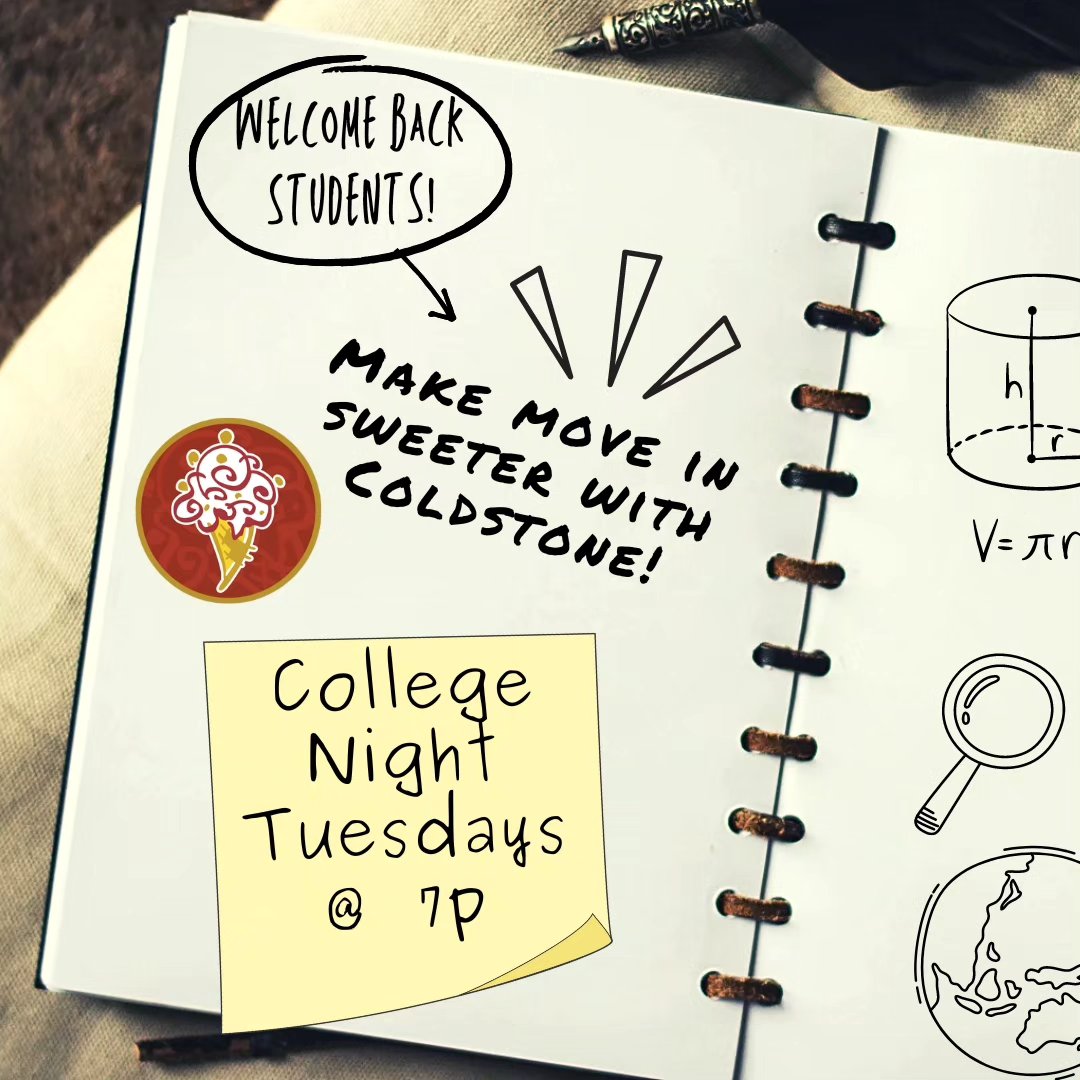 WELCOME BACK
STUDENTS!
MAKE MOVE IN
SWEETER WITH
COLDSTONE!
College
Night
Tuesdays
@ 7p
h
r
V=πr